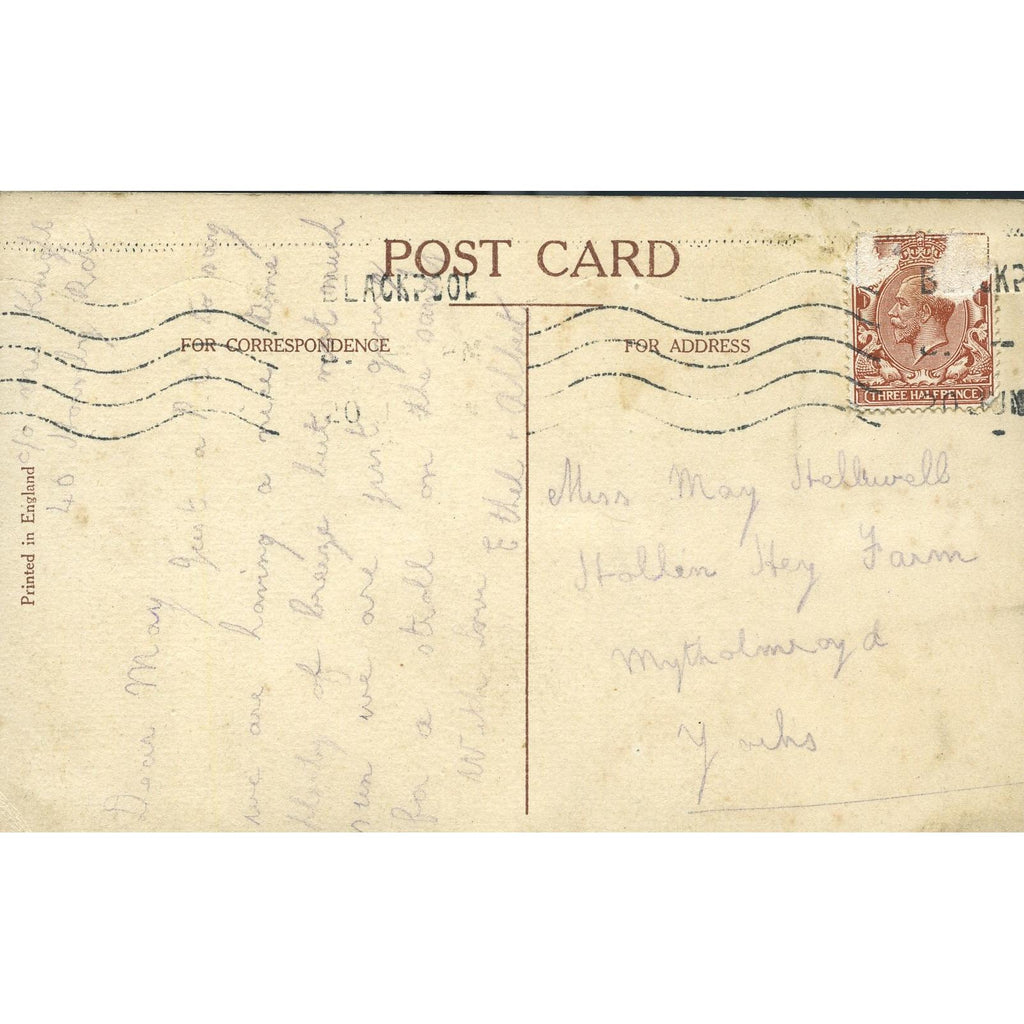 POST CARD
BLACKPOOL
FOR CORRESPONDENCE
FOR ADDRESS
THREE HALFPENCE
Printed in England
c/o Mrs
40
Dear May Just a P.C. to say
we are having a nice time
plenty of breeze but not much
sun we are just going
for a stroll on the sands
With love Ethel & Albert
Miss May Helliwell
Hollin Hey Farm
Mytholmroyd
Yorks